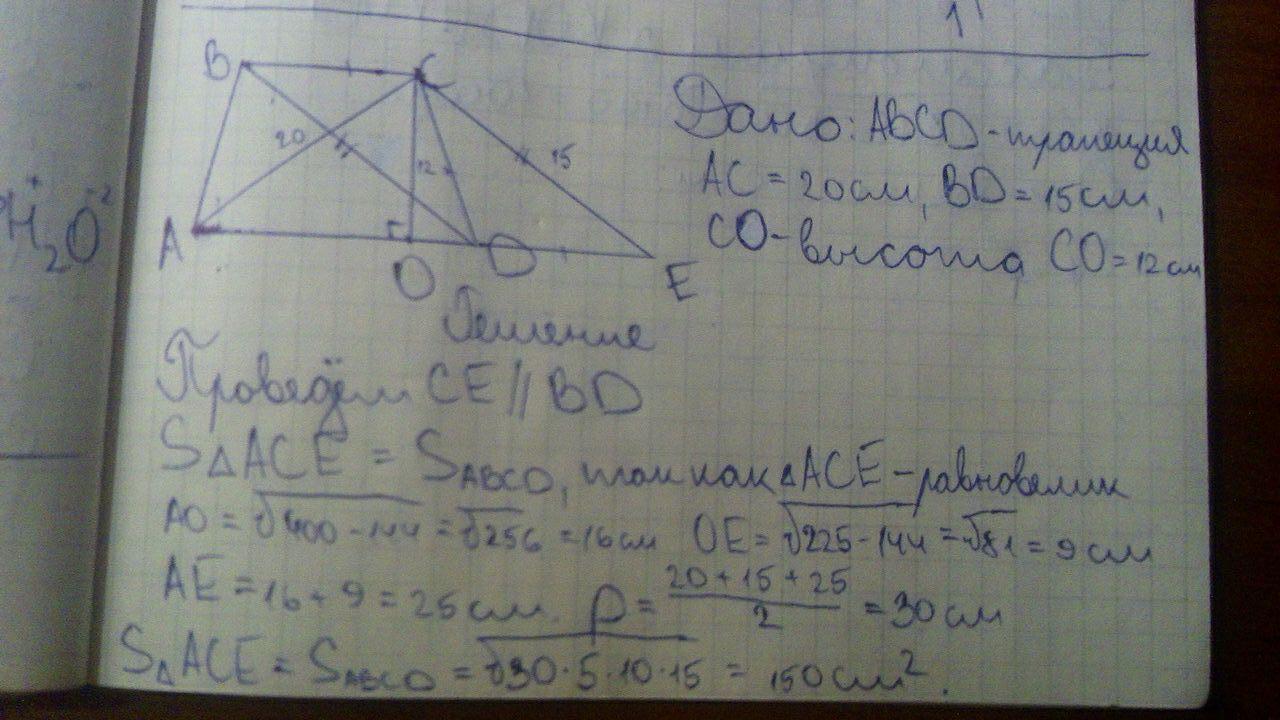 1
B C
20 12 15
A O D E
H₂⁺O⁻²
Дано: ABCD - трапеция
AC = 20 см, BD = 15 см,
CO - высота CO = 12 см
Решение
Проведём CE // BD
S△ACE = SABCD, так как △ACE - равновелик
AO = √400 - 144 = √256 = 16 см OE = √225 - 144 = √81 = 9 см
AE = 16 + 9 = 25 см. p = (20 + 15 + 25)/2 = 30 см
S△ACE = SABCD = √30 · 5 · 10 · 15 = 150 см².